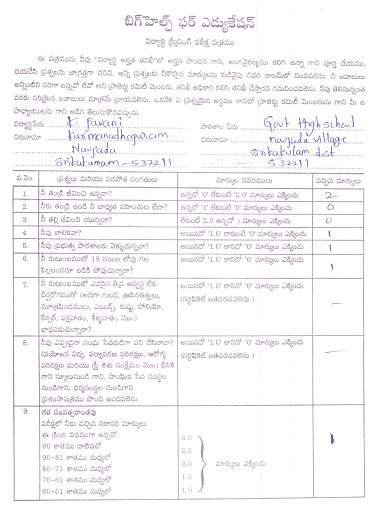 బిగ్‌హెల్ప్ ఫర్ ఎడ్యుకేషన్
విద్యార్థి స్క్రీనింగ్ పరీక్ష పత్రము
ఈ పత్రమును నీవు "విద్యార్థి అర్హత తనిఖీ"లో అర్హత సాధించిన గాని, అంగవైకల్యము కలిగి ఉన్నా గాని పూర్తి చేయుము,
దయచేసి ప్రశ్నలను జాగ్రత్తగా చదివి, అన్ని ప్రశ్నలకు నీకొచ్చిన మార్కులను కుడివైపు చివరి కాలమ్‌లో నింపవలెను. నీ జవాబులు
విద్యార్థిపేరు K. Pavani పాఠశాల పేరు Govt High school
చిరునామా Kusmanadhapuram చిరునామా Naupada village
Naupada Srikakulam dist
Srikakumam - 532211 532211
వ.నెం. ప్రశ్నలు మరియు పరిస్థితి సంగతులు మార్కుల వివరములు వచ్చిన మార్కులు
1. నీ తండ్రి జీవించి ఉన్నాడా? ఉన్నచో '0' లేకుంటే '2.0' మార్కులు ఎక్కించు 2
2. నీకు తండ్రి ఉండి నీ బాధ్యత వహించుట లేదా? ఉన్నచో '1' లేకుంటే '0' మార్కులు ఎక్కించు 0
3. నీ తల్లి జీవించి యున్నదా? లేకుంటే 2.0 ఉన్నచో '0' మార్కులు ఎక్కించు 0
4. నీవు బాలికవా? అయినచో '1.0' కాకుంటే '0' మార్కులు ఎక్కించు 1
5. నీవు ప్రభుత్వ పాఠశాలకు వెళ్ళుచున్నావా? అయినచో '1.0' కానిచో '0' మార్కులు ఎక్కించు 1
6. నీ కుటుంబములో 18 సంతల లోపు గల పిల్లలందరూ బడికి పోవుచున్నారా? అయినచో '1.0' కానిచో '0' మార్కులు ఎక్కించు 1
7. నీ కుటుంబములో ఎవరైన తీవ్ర అస్వస్థ లేక అయినచో '1.0' కానిచో '0' మార్కులు ఎక్కించు
దీర్ఘరోగముతో (అనగా గుండె, ఊపిరితిత్తులు, (సర్టిఫికెట్ జతపరచవలెను.)
మూత్రపిండములు, ఎయిడ్స్, కుష్టు, పోలియో,
కేన్సర్, పక్షవాతం, కీళ్ళవాతం మొ॥)
బాధపడుచున్నారా?
8. నీవు ఎప్పుడైనా సంఘ సేవకుడిగా పని చేసినావా? అయినచో '1.0' కానిచో '0' మార్కులు ఎక్కించు
(వయోజన విద్య, పర్యావరణ పరిరక్షణ, ఆరోగ్య (సర్టిఫికెట్ జతపరచవలెను.)
పరిరక్షణ మరియు స్త్రీ శిశు సంక్షేమం మొ॥) దీనికి
గాని స్కూలునుండి గాని, సాంఘిక సేవ సంస్థల
నుండిగాని, ధర్మసంస్థల నుండిగాని
ప్రశంసాపత్రము పొంది ఉండవలెను.
9. గత సంవత్సరాంతపు
పరీక్షలో నీకు వచ్చిన సరాసరి మార్కులు
ఈ క్రింది విధముగా ఉన్నచో 3.0
90 శాతము దాటినచో 2.5
90-81 శాతము మధ్యలో 2.0 మార్కులు ఎక్కించు 1
80-71 శాతము మధ్యలో 1.5
70-61 శాతము మధ్యలో 1.0
60-51 శాతము మధ్యలో